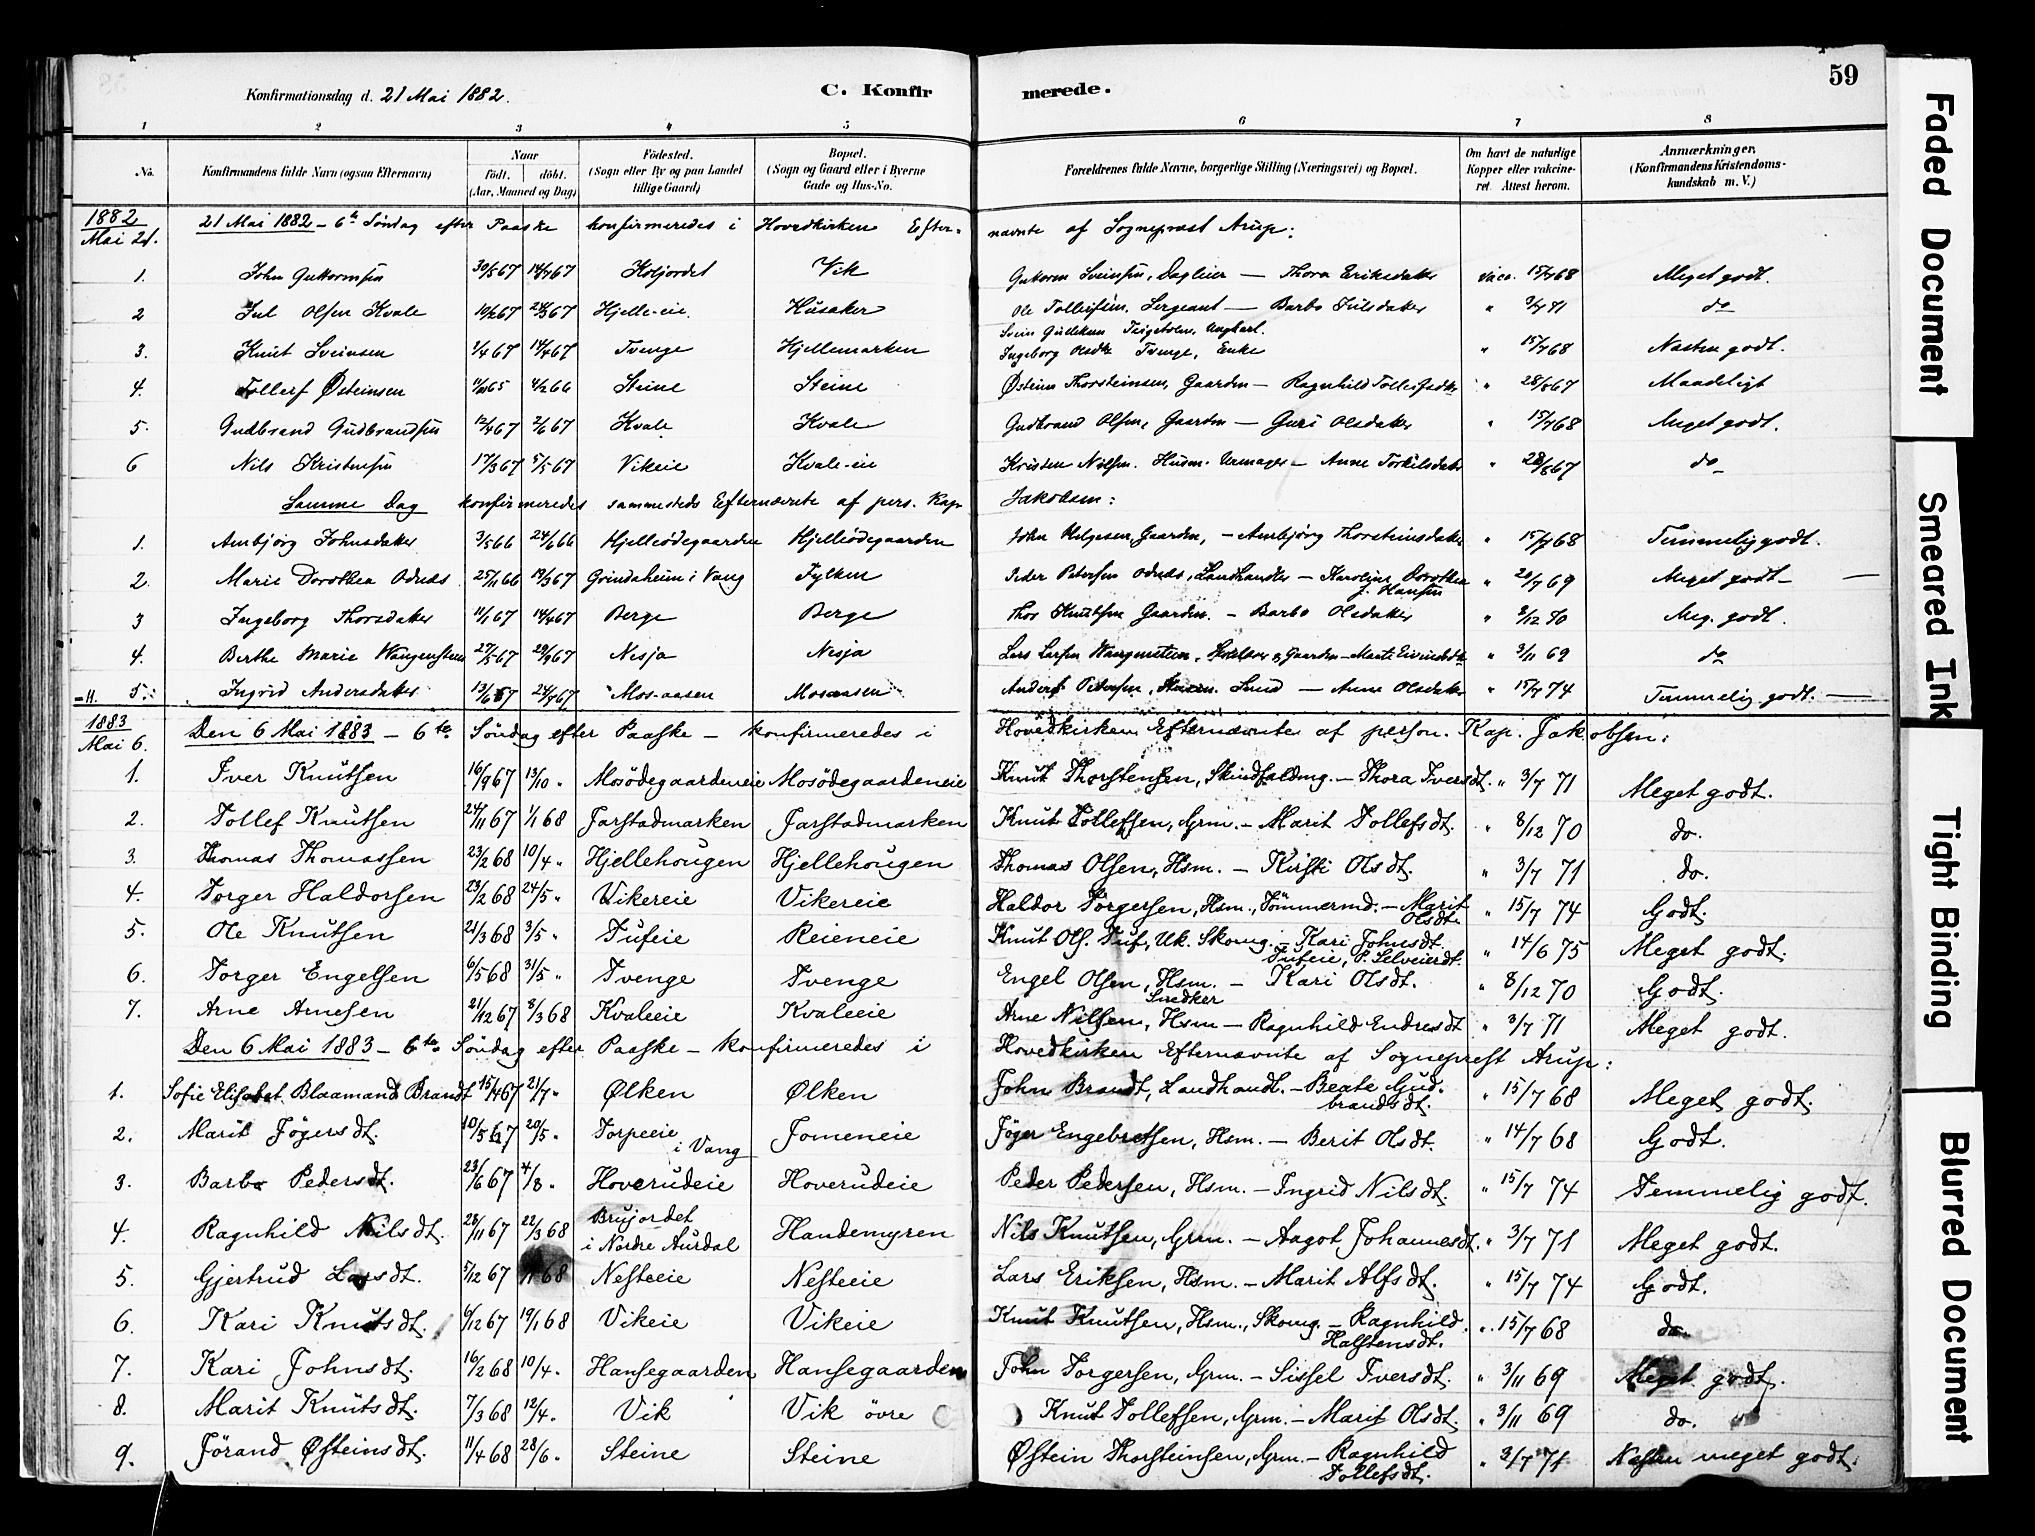 59
Konfirmationsdag d. 21 Mai 1882.
C. Konfir merede.
1 2 3 4 5 6 7 8
No. Konfirmandens fulde Navn (ogsaa Efternavn) Naar født. døbt. (Aar, Maaned og Dag) Fødested. (Sogn eller By og paa Landet tillige Gaard) Bopæl. (Sogn og Gaard eller i Byerne Gade og Hus-No. Forældrenes fulde Navne, borgerlige Stilling (Næringsvei) og Bopæl. Om havt de naturlige Kopper eller vakcineret. Attest herom. Anmærkninger. (Konfirmandens Kristendomskundskab m. V.)
1882 Mai 21. 21 Mai 1882 - 6te Söndag efter Paaske konfirmeredes i Hovedkirken Efter- nævnte af Sognepræst Arup:
1. John Guttormsen 30/5 67 14/7 67 Vik Guttorm Sveinsen, Dagleier — Thora Eriksdatter vacc. 15/7 68 Meget godt.
2 Jul Olsen Kvale 10/2 67 24/3 67 Hjelle-eie. Husaker Ole Tollefsen, Sergeant — Barbo Julsdatter " do
3. Knut Sveinsen 2/4 67 14/4 67 Tvenge Hjellemarken Svein Gulleksen Teigebolen, Ungkarl. Ingeborg Olsdtr Tvenge, Enke " 15/7 68 Næsten godt.
4. Tollef Østeinsen 4/2 66 Steine Steine Østein Thorsteinsen, Gaardm — Ragnhild Tollefsdtr " 28/8 67 Maadeligt
5. Gudbrand Gudbrandsen 12/4 67 2/6 67 Kvale Kvale Gudbrand Olsen, Gaardm — Guri Olsdatter " 15/7 68 Meget godt.
6 Nils Kristensen 17/3 67 5/5 67 Vikeie Kvale-eie Kristen Nilsen. Husm. Urmager — Anne Torkilsdatter " 28/8 67 do
Samme Dag konfirmeredes sammesteds Efternævnte af pers. Kap. Jakobsen:
1. Anbjörg Johnsdatter 3/5 66 24/6 66 Hjelleödegaarden Hjelleödegaarden John Helgesen, Gaardm, — Anbjörg Thorsteinsdatter " 15/7 68 Temmelig godt.
2. Marie Dorothea Odnæs 25/11 66 19/3 67 Grindaheim i Vang Fylken Peder Petersen Odnæs, Landhandler — Karoline Dorothea J. Hansen " 20/7 69 Meget godt —
3 Ingeborg Thorsdatter 11/1 67 14/4 67 Berge Berge Thor Knutsen Gaardm. — Barbo Olsdatter " 8/12 70 Meg. godt.
4. Berthe Marie Wangensteen 27/5 67 29/9 67 Nesja Nesja Lars Larsen Wangensteen, & Gaardm — Marit Eivindsdtr " 3/11 69 do
=H. 5. Ingrid Andersdatter 13/6 67 24/8 67 Mos-aasen Mosaasen Anders Petersen, Husm. Smed — Anne Olsdatter " 15/7 74 Temmelig godt. —
1883 Mai 6. Den 6 Mai 1883 - 6te Söndag efter Paaske - konfirmeredes i Hovedkirken Efternævnte af person. Kap. Jakobsen:
1. Iver Knutsen 16/9 67 13/10 " Mosödegaardeneie Mosödegaardeneie Knut Thorstensen, Skindfeldmg. - Thora Iversdt. " 3/7 71 Meget godt.
2. Tollef Knutsen 24/11 67 1/1 68 Jarstadmarken Jarstadmarken Knut Tollefsen, Grm. - Marit Tollefsdt. " 8/12 70 do.
3. Thomas Thomassen 23/2 68 10/4 " Hjellehougen Hjellehougen Thomas Olsen, Hsm. - Kirsti Olsdt. " 3/7 71 do.
4. Torger Haldorsen 23/2 68 24/5 " Vikereie Vikereie Haldor Torgersen, Hsm., Tömmermd. - Marit Olsdt. " 15/7 74 Godt.
5. Ole Knutsen 21/3 68 3/5 " Tufeie Reieneie Knut Ols. Tuf, Uk. Skomg. - Kari Johnsdt. Tufeie, P. Selveierdt. " 14/6 75 Meget godt.
6. Torger Engelsen 6/5 68 31/5 " Tvenge Tvenge Engel Olsen, Hsm. Snedker - Kari Olsdt. " 8/12 70 Godt.
7. Arne Arnesen 21/12 67 8/3 68 Kvaleeie Kvaleeie Arne Nilsen, Hsm - Ragnhild Endresdt " 3/7 71 Meget godt.
Den 6 Mai 1883 - 6te Söndag efter Paaske - konfirmeredes i Hovedkirken Efternævnte af Sogneprest Arup:
1. Sofie Elisabet Blaamand Brandt 15/4 67 21/7 " Ølken Ølken John Brandt, Landhandl. - Beate Gudbrandsdt. " 15/7 68 Meget godt.
2. Marit Jögersdt. 10/5 67 20/5 " Torpeeie i Vang Jomeneie Jöger Engebretsen, Hsm. - Berit Olsdt. " 14/7 68 Godt.
3. Barbo Pedersdt. 23/6 67 4/8 " Hoverudeie Hoverudeie Peder Pedersen, Hsm. - Ingrid Nilsdt. " 15/7 74 Temmelig godt.
4. Ragnhild Nilsdt. 28/11 67 22/3 68 Brujordet i Nordre Aurdal Handemyren Nils Knutsen, Grm. - Aagot Johannesdt. " 3/7 71 Meget godt.
5. Gjertrud Larsdt. 5/12 67 68 Nesteeie Nesteeie Lars Eriksen, Hsm. - Marit Alfsdt. " 15/7 74 Godt.
6. Kari Knutsdt. 6/12 67 19/1 68 Vikeie Vikeie Knut Knutsen, Hsm., Skomg. - Ragnhild Halstensdt. " 15/7 68 do.
7. Kari Johnsdt. 16/2 68 10/4 " Hansegaarden Hansegaarden John Torgersen, Grm. - Sissel Iversdt. " 3/11 69 Meget godt.
8. Marit Knutsdt. 7/3 68 12/4 " Vik Vik övre Knut Tollefsen, Grm. - Marit Olsdt. " 3/11 69 do.
9. Jörand Østeinsdt. 11/4 68 28/6 " Steine Steine Østein Thorsteinsen, Grm. - Ragnhild Tollefsdt. " 3/7 71 Næsten meget godt.
Faded Document
Smeared Ink
Tight Binding
Blurred Document